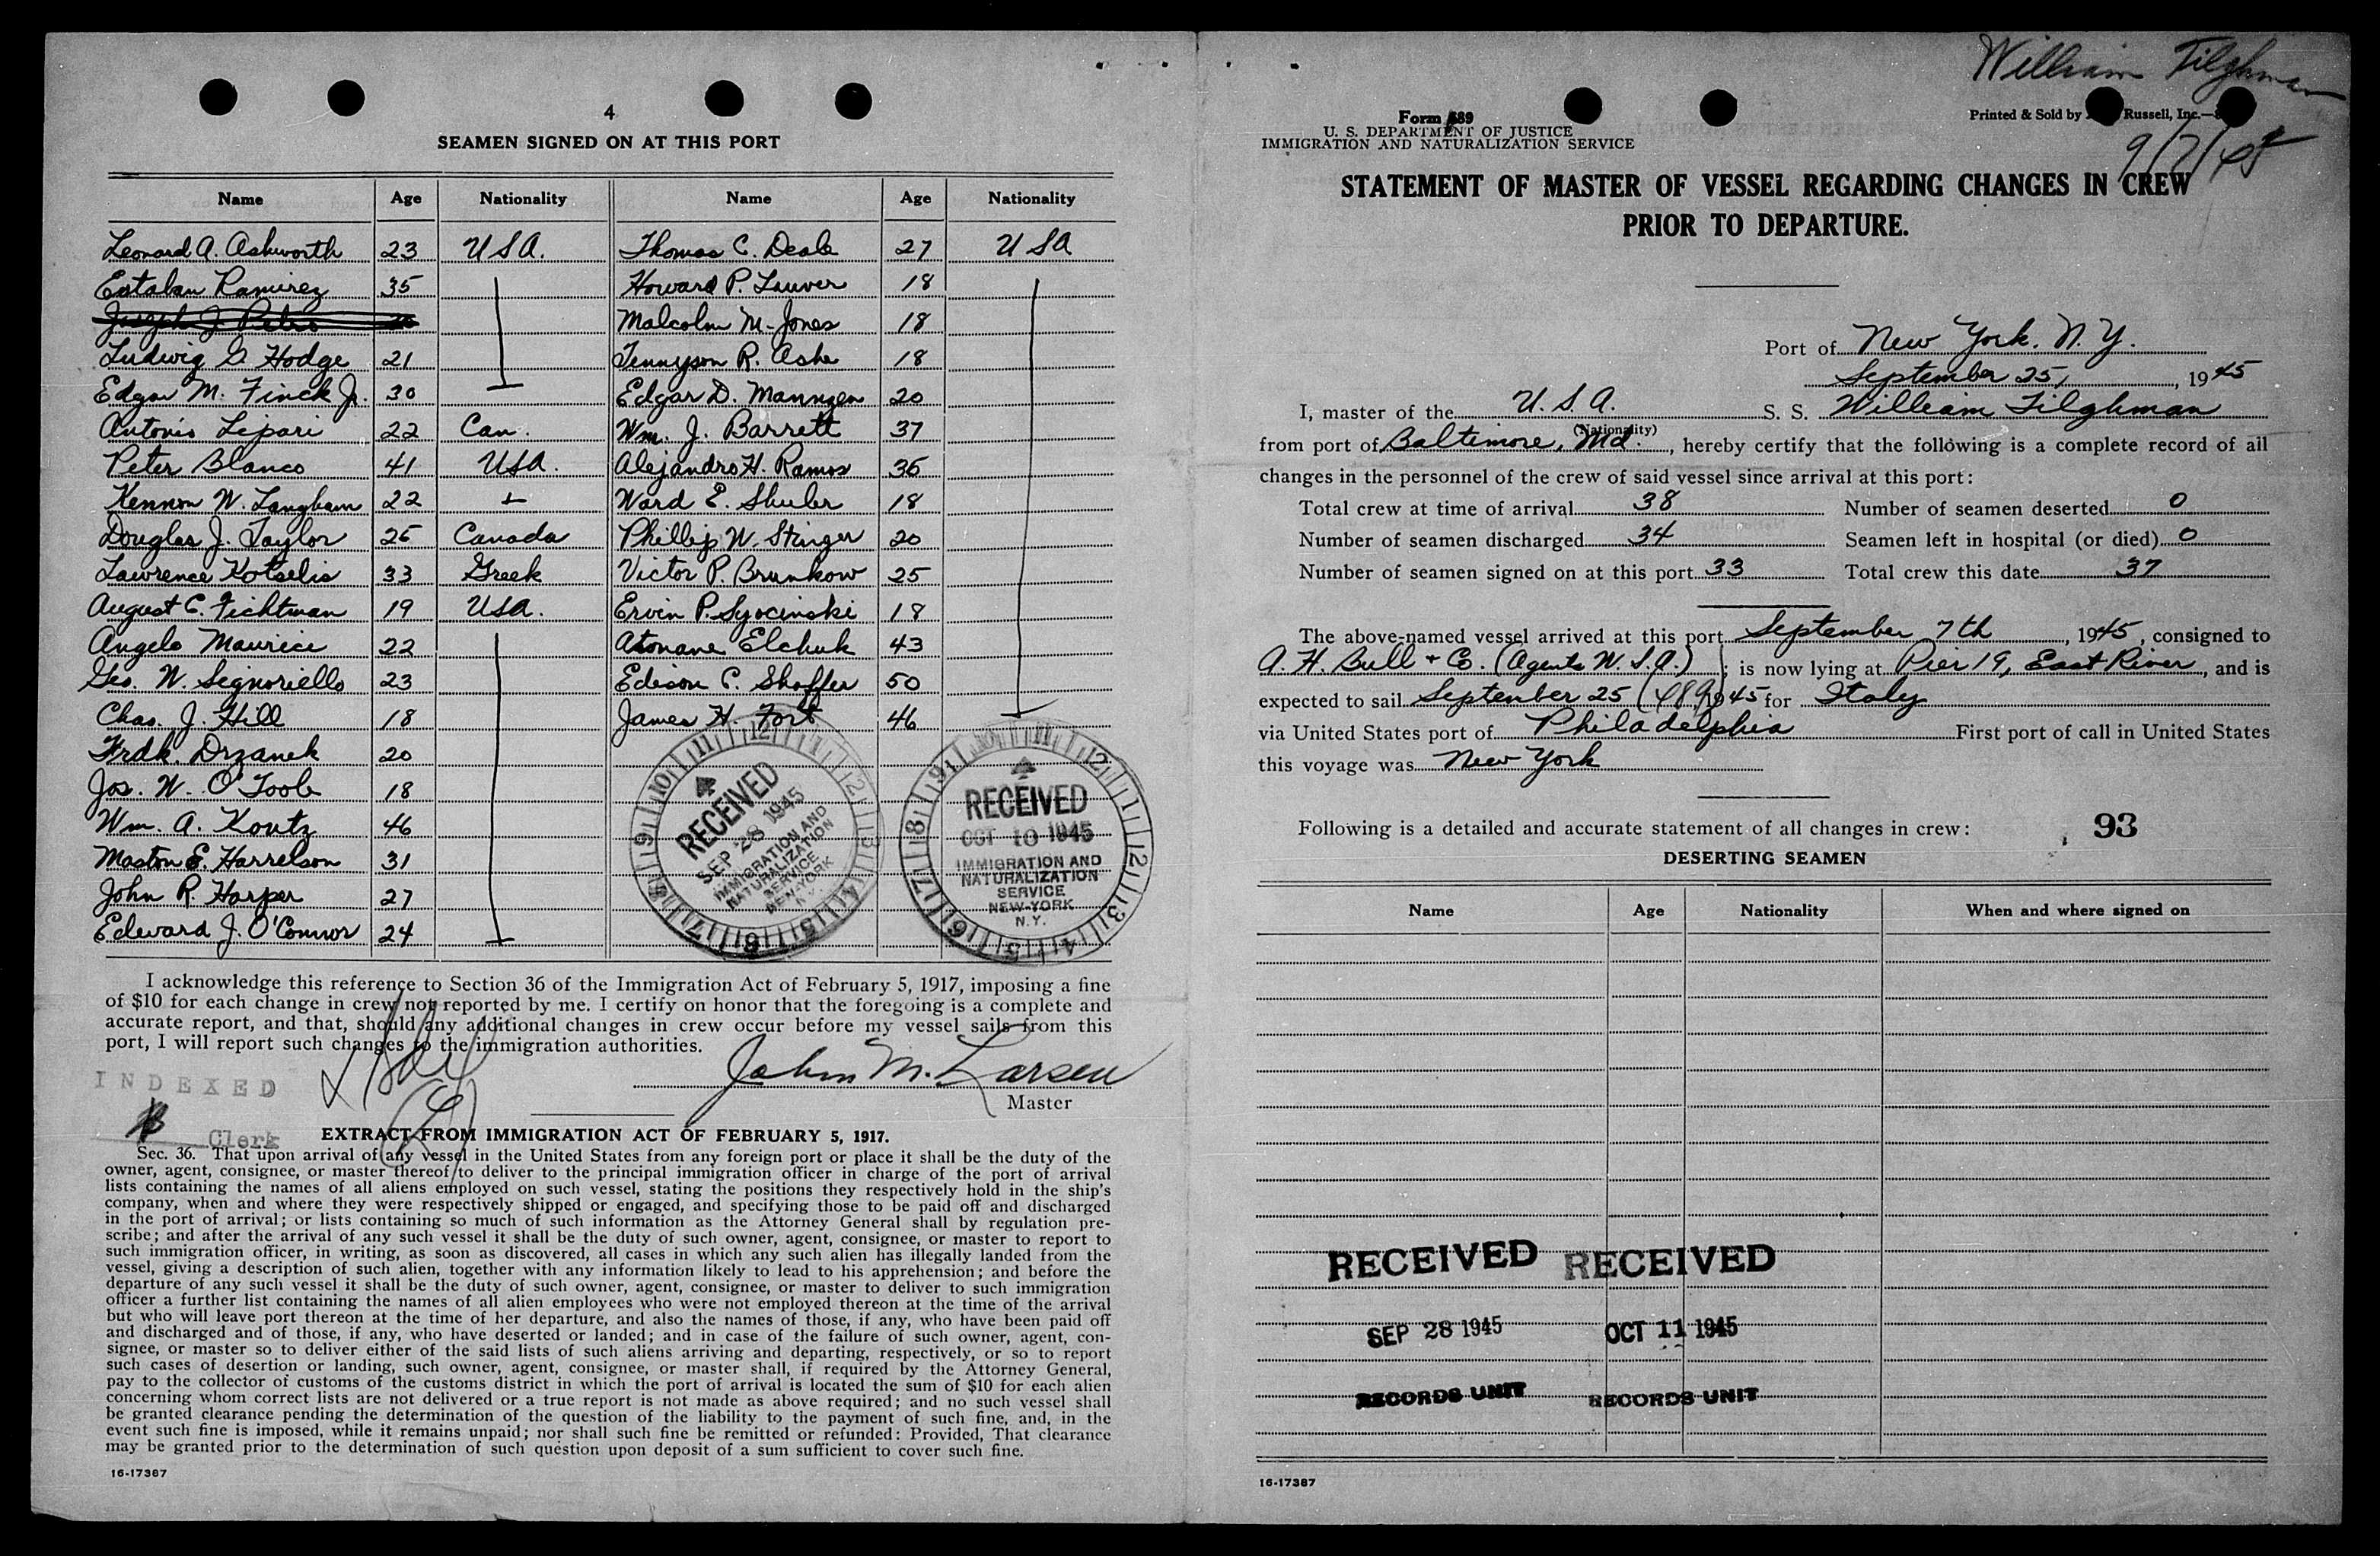 4
SEAMEN SIGNED ON AT THIS PORT
Name Age Nationality Name Age Nationality
Leonard A. Ashworth 23 USA. Thomas C. Deale 27 USA
Estaban Ramirez 35 Howard P. Lauver 18
Joseph J. Petro Malcolm M. Jones 18
Ludwig G. Hodge 21 Tennyson R. Ashe 18
Edgar M. Finck Jr. 30 Edgar D. Manngen 20
Antonio Lipari 22 Can. Wm. J. Barrett 37
Peter Blanco 41 USA. Alejandro H. Ramos 36
Kennon W. Langham 22 Ward E. Shuler 18
Douglas J. Taylor 25 Canada Phillip W. Stinger 20
Lawrence Kotselis 33 Greek Victor P. Brunkow 25
August C. Fichtman 19 USA. Ervin P. Syocinski 18
Angelo Maurice 22 Atonane Elchuk 43
Geo. W. Signoriello 23 Edison C. Shaffer 50
Chas. J. Hill 18 James H. Fort 46
Frdk. Drzanek 20
Jos. W. O'Toole 18
Wm. A. Koutz 46
Maston E. Harrelson 31
John R. Harper 27
Edward J. O'Connor 24
RECEIVED
SEP 28 1945
IMMIGRATION AND
NATURALIZATION
SERVICE
NEW-YORK
N.Y.
RECEIVED
OCT 10 1945
IMMIGRATION AND
NATURALIZATION
SERVICE
NEW-YORK
N.Y.
I acknowledge this reference to Section 36 of the Immigration Act of February 5, 1917, imposing a fine
of $10 for each change in crew not reported by me. I certify on honor that the foregoing is a complete and
accurate report, and that, should any additional changes in crew occur before my vessel sails from this
port, I will report such changes to the immigration authorities.
INDEXED
John M. Larsen
Master
Clerk
EXTRACT FROM IMMIGRATION ACT OF FEBRUARY 5, 1917.
Sec. 36. That upon arrival of any vessel in the United States from any foreign port or place it shall be the duty of the
owner, agent, consignee, or master thereof to deliver to the principal immigration officer in charge of the port of arrival
lists containing the names of all aliens employed on such vessel, stating the positions they respectively hold in the ship's
company, when and where they were respectively shipped or engaged, and specifying those to be paid off and discharged
in the port of arrival; or lists containing so much of such information as the Attorney General shall by regulation pre-
scribe; and after the arrival of any such vessel it shall be the duty of such owner, agent, consignee, or master to report to
such immigration officer, in writing, as soon as discovered, all cases in which any such alien has illegally landed from the
vessel, giving a description of such alien, together with any information likely to lead to his apprehension; and before the
departure of any such vessel it shall be the duty of such owner, agent, consignee, or master to deliver to such immigration
officer a further list containing the names of all alien employees who were not employed thereon at the time of the arrival
but who will leave port thereon at the time of her departure, and also the names of those, if any, who have been paid off
and discharged and of those, if any, who have deserted or landed; and in case of the failure of such owner, agent, con-
signee, or master so to deliver either of the said lists of such aliens arriving and departing, respectively, or so to report
such cases of desertion or landing, such owner, agent, consignee, or master shall, if required by the Attorney General,
pay to the collector of customs of the customs district in which the port of arrival is located the sum of $10 for each alien
concerning whom correct lists are not delivered or a true report is not made as above required; and no such vessel shall
be granted clearance pending the determination of the question of the liability to the payment of such fine, and, in the
event such fine is imposed, while it remains unpaid; nor shall such fine be remitted or refunded: Provided, That clearance
may be granted prior to the determination of such question upon deposit of a sum sufficient to cover such fine.
16-17387
William Tilghman
9/7/45
Form 689
U. S. DEPARTMENT OF JUSTICE
IMMIGRATION AND NATURALIZATION SERVICE
Printed & Sold by Russell, Inc.
STATEMENT OF MASTER OF VESSEL REGARDING CHANGES IN CREW
PRIOR TO DEPARTURE.
Port of New York. N. Y.
September 25, , 1945
I, master of the U. S. A. S. S. William Tilghman
(Nationality)
from port of Baltimore, Md. , hereby certify that the following is a complete record of all
changes in the personnel of the crew of said vessel since arrival at this port:
Total crew at time of arrival 38 Number of seamen deserted 0
Number of seamen discharged 34 Seamen left in hospital (or died) 0
Number of seamen signed on at this port 33 Total crew this date 37
The above-named vessel arrived at this port September 7th , 1945, consigned to
A. H. Bull & Co. (Agents W. S. A.) ; is now lying at Pier 19, East River , and is
expected to sail September 25 1945 for Italy
via United States port of Philadelphia First port of call in United States
this voyage was New York
Following is a detailed and accurate statement of all changes in crew: 93
DESERTING SEAMEN
Name Age Nationality When and where signed on
RECEIVED RECEIVED
SEP 28 1945 OCT 11 1945
RECORDS UNIT RECORDS UNIT
16-17387